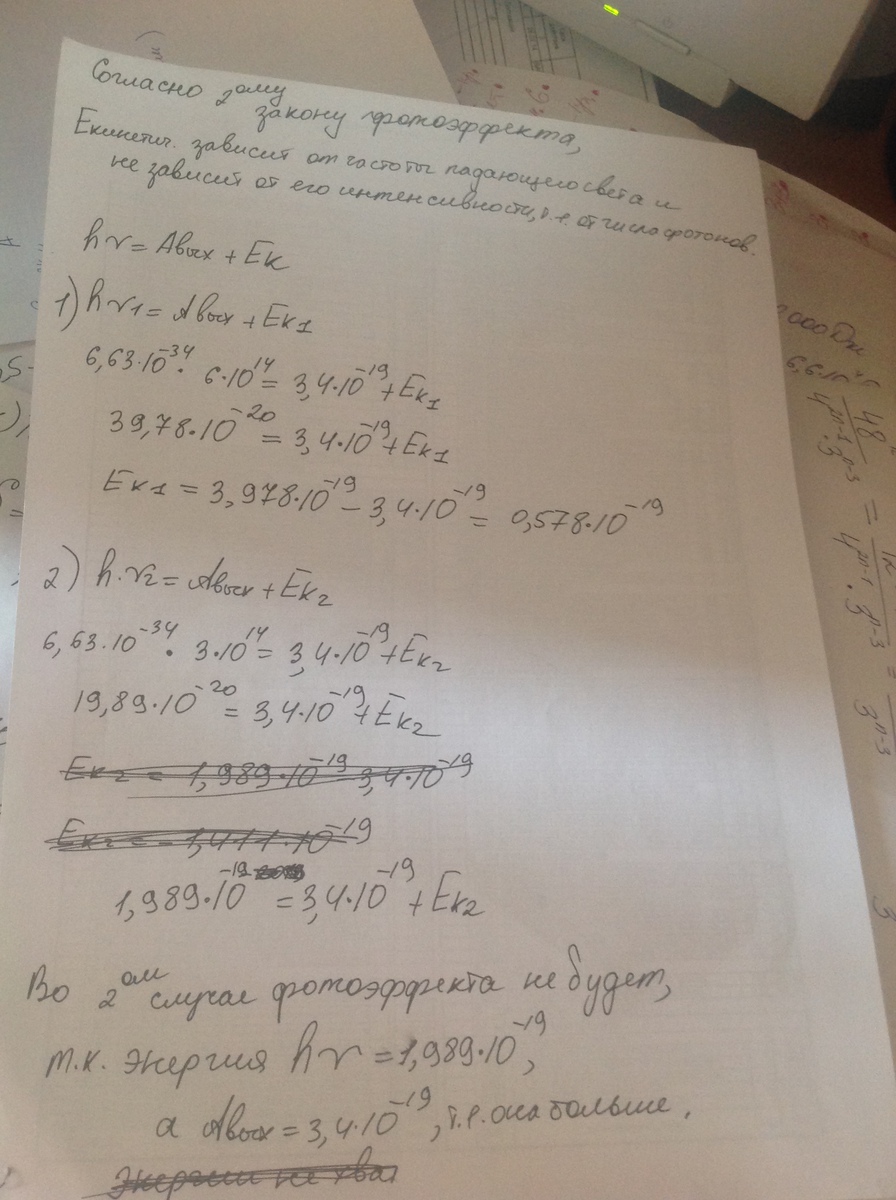 Согласно 2ому
закону фотоэффекта,
Eкинетич. зависит от частоты падающего света и
не зависит от его интенсивности, т.е. от числа фотонов.
hν = Aвых + Eк
1) hν1 = Aвых + Eк1
6,63·10⁻³⁴ · 6·10¹⁴ = 3,4·10⁻¹⁹ + Eк1
39,78·10⁻²⁰ = 3,4·10⁻¹⁹ + Eк1
Eк1 = 3,978·10⁻¹⁹ − 3,4·10⁻¹⁹ = 0,578·10⁻¹⁹
2) h·ν2 = Aвых + Eк2
6,63·10⁻³⁴ · 3·10¹⁴ = 3,4·10⁻¹⁹ + Eк2
19,89·10⁻²⁰ = 3,4·10⁻¹⁹ + Eк2
Eк2 = 1,989·10⁻¹⁹ − 3,4·10⁻¹⁹
Eк2 = −1,411·10⁻¹⁹
1,989·10⁻¹⁹ = 3,4·10⁻¹⁹ + Eк2
Во 2ом случае фотоэффекта не будет,
т.к. энергия hν = 1,989·10⁻¹⁹,
а Aвых = 3,4·10⁻¹⁹, т.е. она больше.
Энергии не хва